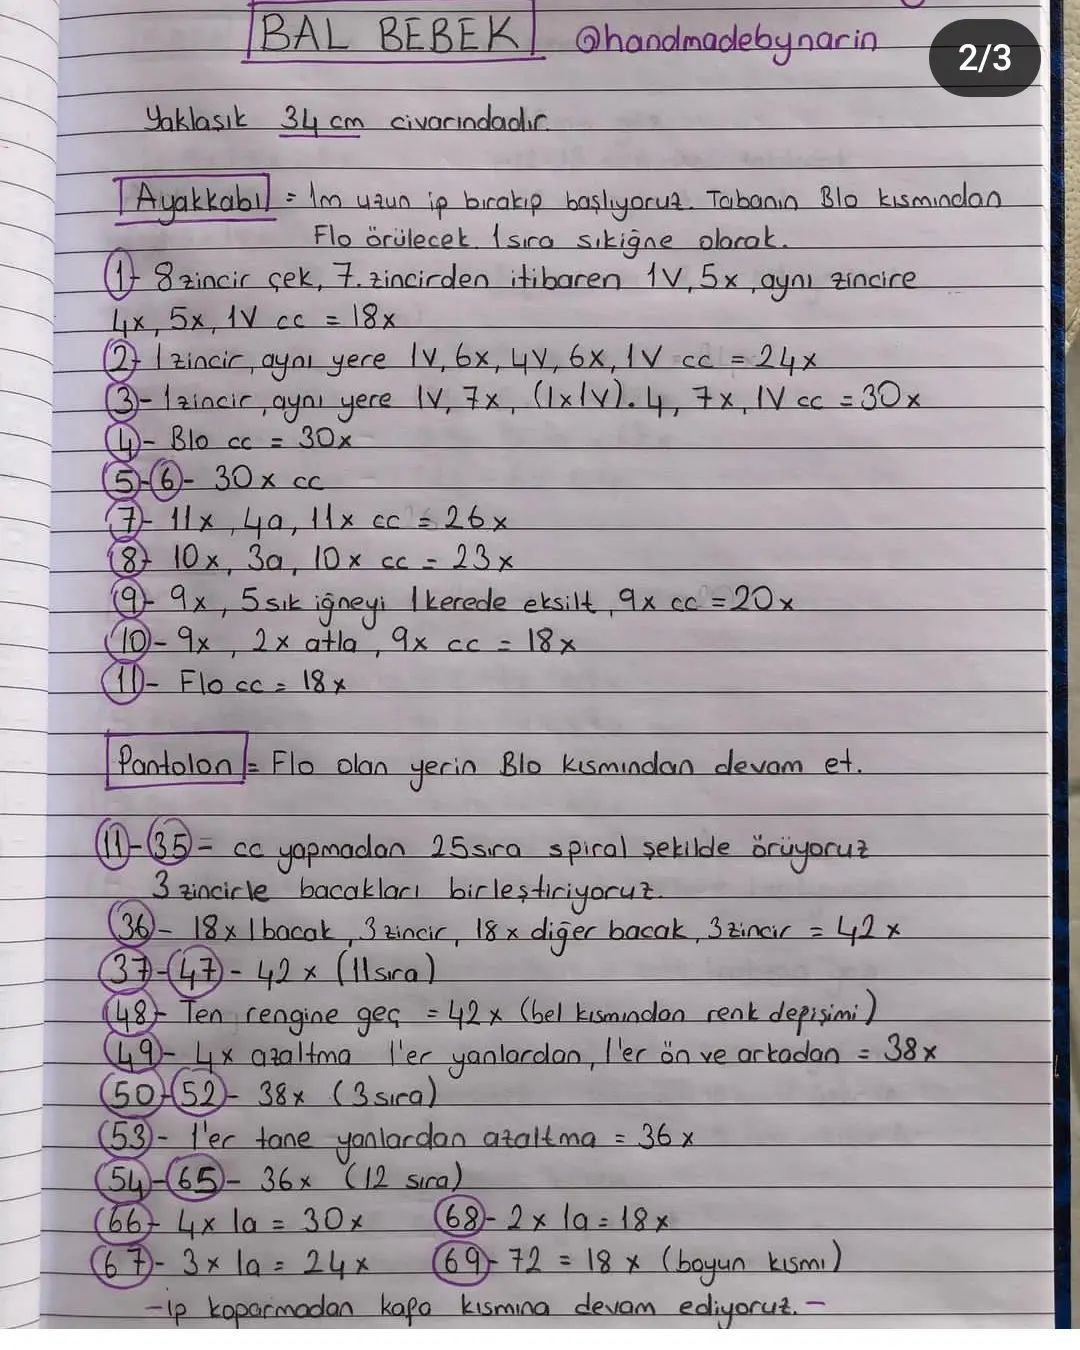 BAL BEBEK @handmadebynarin
2/3
Yaklaşık 34 cm civarındadır.
Ayakkabı = 1m uzun ip bırakıp başlıyoruz. Tabanın Blo kısmından
Flo örülecek. 1 sıra sıkiğne olarak.
1- 8 zincir çek, 7. zincirden itibaren 1V, 5x, aynı zincire
4x, 5x, 1V cc = 18x
2- 1 zincir, aynı yere 1V, 6x, 4V, 6x, 1V cc = 24x
3- 1 zincir, aynı yere 1V, 7x, (1x1V).4, 7x, 1V cc = 30x
4- Blo cc = 30x
5-6- 30x cc
7- 11x, 4a, 11x cc = 26x
8- 10x, 3a, 10x cc = 23x
9- 9x, 5 sık iğneyi 1 kerede eksilt, 9x cc = 20x
10- 9x, 2x atla, 9x cc = 18x
11- Flo cc = 18x
Pantolon = Flo olan yerin Blo kısmından devam et.
11-35= cc yapmadan 25 sıra spiral şekilde örüyoruz
3 zincirle bacakları birleştiriyoruz.
36- 18x 1 bacak, 3 zincir, 18x diğer bacak, 3 zincir = 42x
37-47- 42x (11 sıra)
48- Ten rengine geç = 42x (bel kısmından renk depişimi)
49- 4x azaltma 1'er yanlardan, 1'er ön ve arkadan = 38x
50-52- 38x (3 sıra)
53- 1'er tane yanlardan azaltma = 36x
54-65- 36x (12 sıra)
66- 4x 1a = 30x 68- 2x 1a = 18x
67- 3x 1a = 24x 69-72 = 18x (boyun kısmı)
-ip koparmadan kafa kısmına devam ediyoruz.-